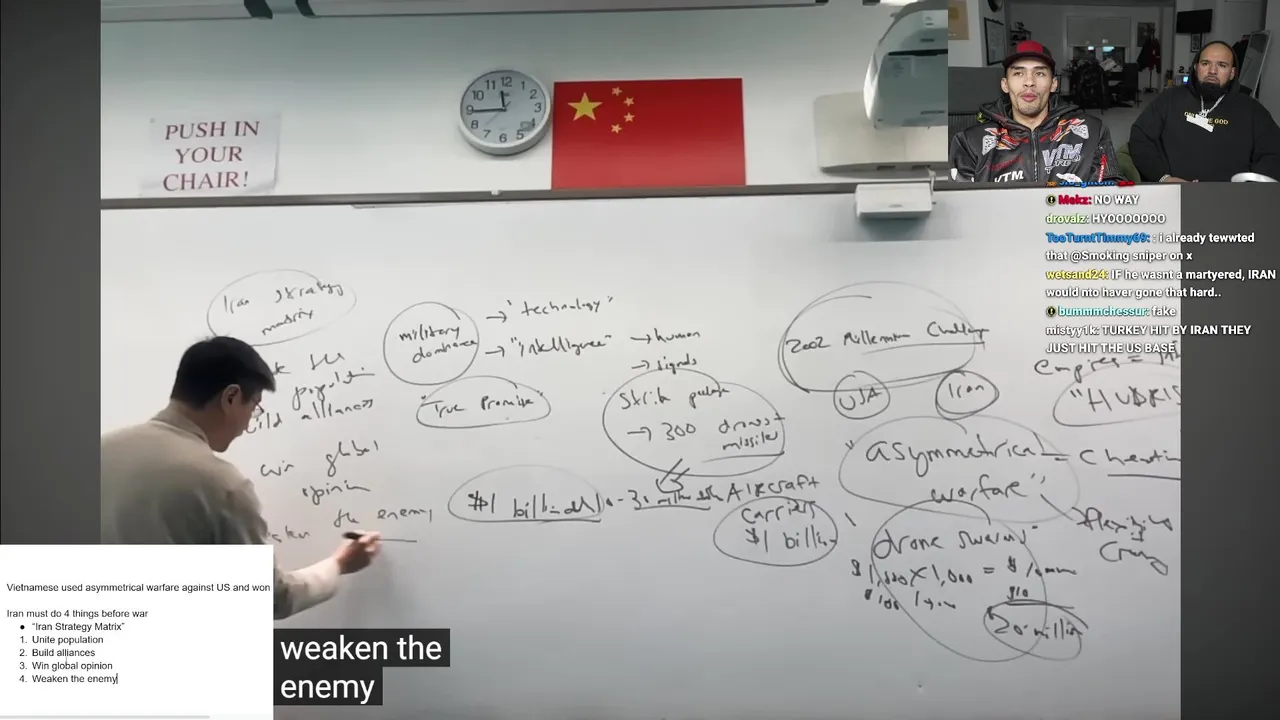 PUSH IN
YOUR
CHAIR!
12
11
1
10
2
9
3
8
4
7
5
6
Iran strategy
matrix
US
population
alliances
win global
opinion
the enemy
military
dominance
→ "technology"
→ "intelligence" → human
→ signals
"True Promise"
Strike package
→ 300 drones +
missiles
$1 billion
Aircraft
carriers
$1 billion
2002 Millennium Challenge
USA
Iran
empires =
"HUBRIS
"asymmetrical
warfare"
= Cheating
flexible
"drone swarms"
$1,000 X 1,000 = $
20 million
VTM
VTM
GOD
Mokz: NO WAY
drovalz: HYOOOOOOO
TooTurntTimmy69: : i already tewwted
that @Smoking sniper on x
wetsand24: IF he wasnt a martyered, IRAN
would nto haver gone that hard..
bummmchessur: fake
mistyy1k: TURKEY HIT BY IRAN THEY
JUST HIT THE US BASE
Vietnamese used asymmetrical warfare against US and won
Iran must do 4 things before war
● "Iran Strategy Matrix"
1. Unite population
2. Build alliances
3. Win global opinion
4. Weaken the enemy
weaken the
enemy